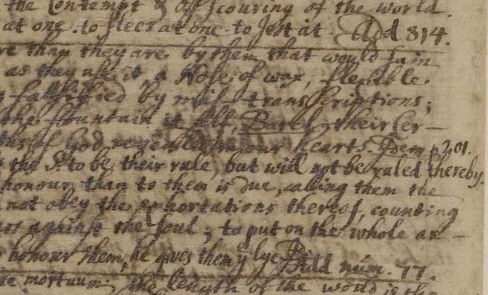 the contempt & offscouring of the world
at one to fleer at one to Jest at. Add 814.
re than they are by them that would fain
as they use it a Nose of wax, flexible.
falsified by mis-transcriptions;
the fountain it self, their Cer-
of God in our hearts. Poem p 201.
the Sr to be their rule, but will not be ruled thereby.
honour than to them is due, calling them the
not obey the exhortations thereof, counting
against the soul; to put on the whole ar-
honour them, he gives them y lye. Add num. 77.
mortuum; the length of the world is the